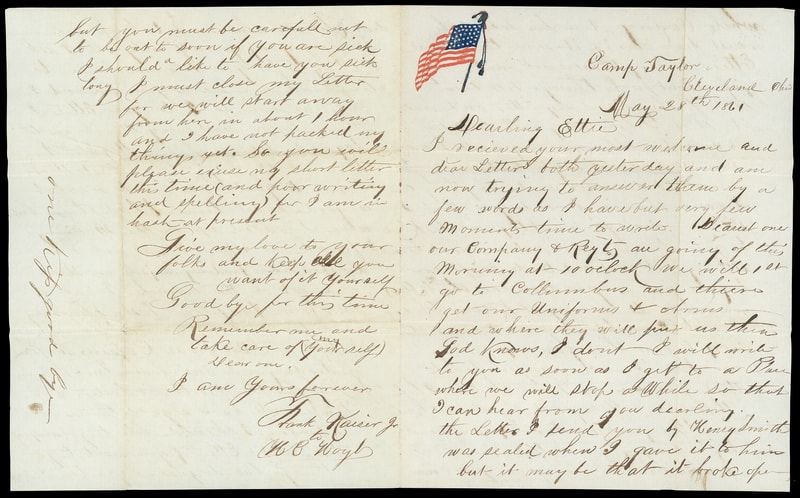 Camp Taylor
Cleveland Ohio
May 28th 1861
Dearling Ettie
I recieved your most welcome and
dear Letters both yesterday and am
now trying to answer thame by a
few words as I have but very few
Moments time to write. Dearest one
our Company & Regt are going of this
Morning at 10 oclock we will 1st
go to Collumbus and there
get our Uniforms & arms
and where they will put us then
God knows, I dont I will write
to you as soon as I get to a Place
where we will stop a While so that
I can hear from you dearling.
the Letter I send you by Henry Smith
was sealed when I gave it to him
but it may be that it broke open
but you must be carefull not
to be out to soon if you are sick
I should like to have you sick
long I must close my Letter
for we will start away
from here in about 1 hour
and I have not packed my
things yet. So you will
please excuse my short letter
this time (and poor writing
and spelling) for I am in
hast at present
Give my love to your
folk and keep all you
want of it yourself
Good bye for this time
Remember me and
take care of (my) (your self)
Dear one.
I am Yours forever
Frank Kaiser Jr
to
H E Hoyt
one kiss good bye